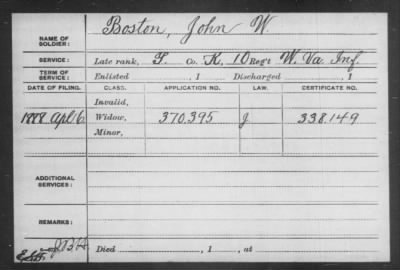 NAME OF SOLDIER: Boston, John W.
SERVICE: Late rank, Co. K, 10 Reg't W. Va. Inf.
TERM OF SERVICE: Enlisted , 1 Discharged , 1
DATE OF FILING. CLASS. APPLICATION NO. LAW. CERTIFICATE NO.
Invalid,
1888 Apl 6 Widow, 370.395 J 338.149
Minor,
ADDITIONAL SERVICES:
REMARKS:
Died , 1 , at